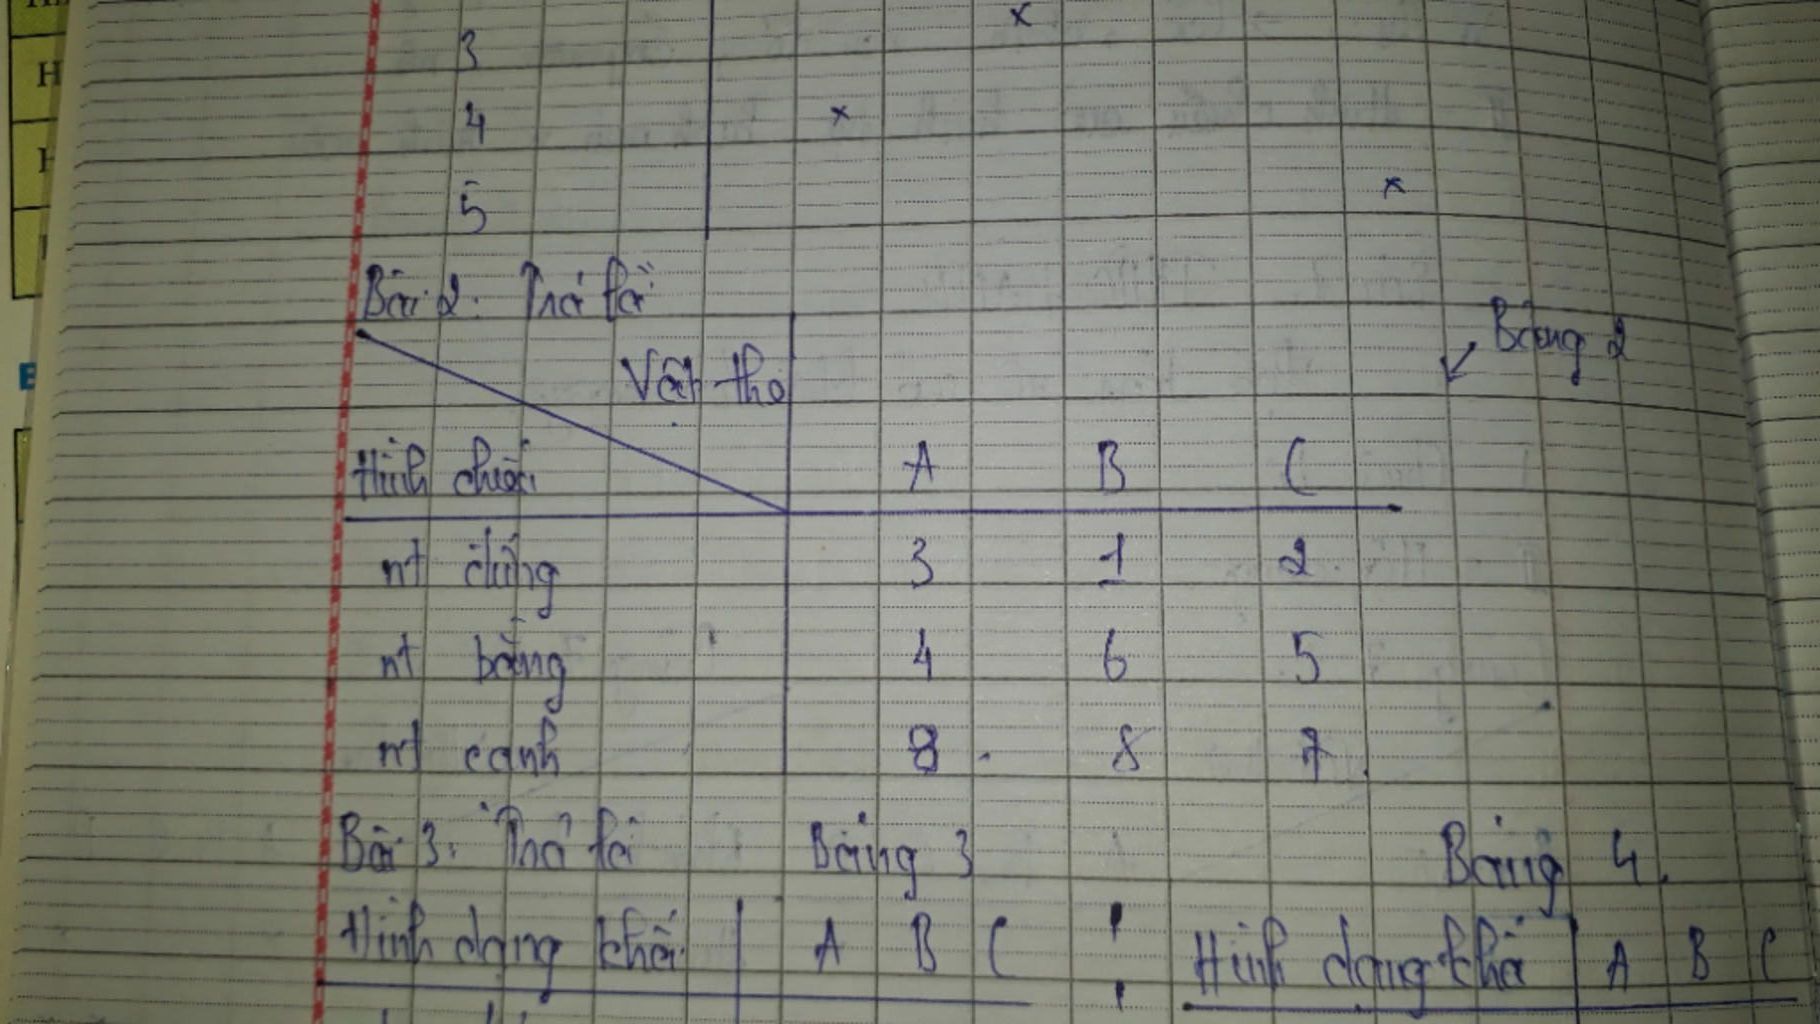 x
3
4 x
5 x
Bài 2: Trả lời
Bảng 2
Vật thể
Hình chiếu A B C
nt đứng 3 1 2
nt bằng 4 6 5
nt cạnh 8 8 7
Bài 3: Trả lời Bảng 3 Bảng 4
Hình dạng khối A B C Hình dạng khố A B C